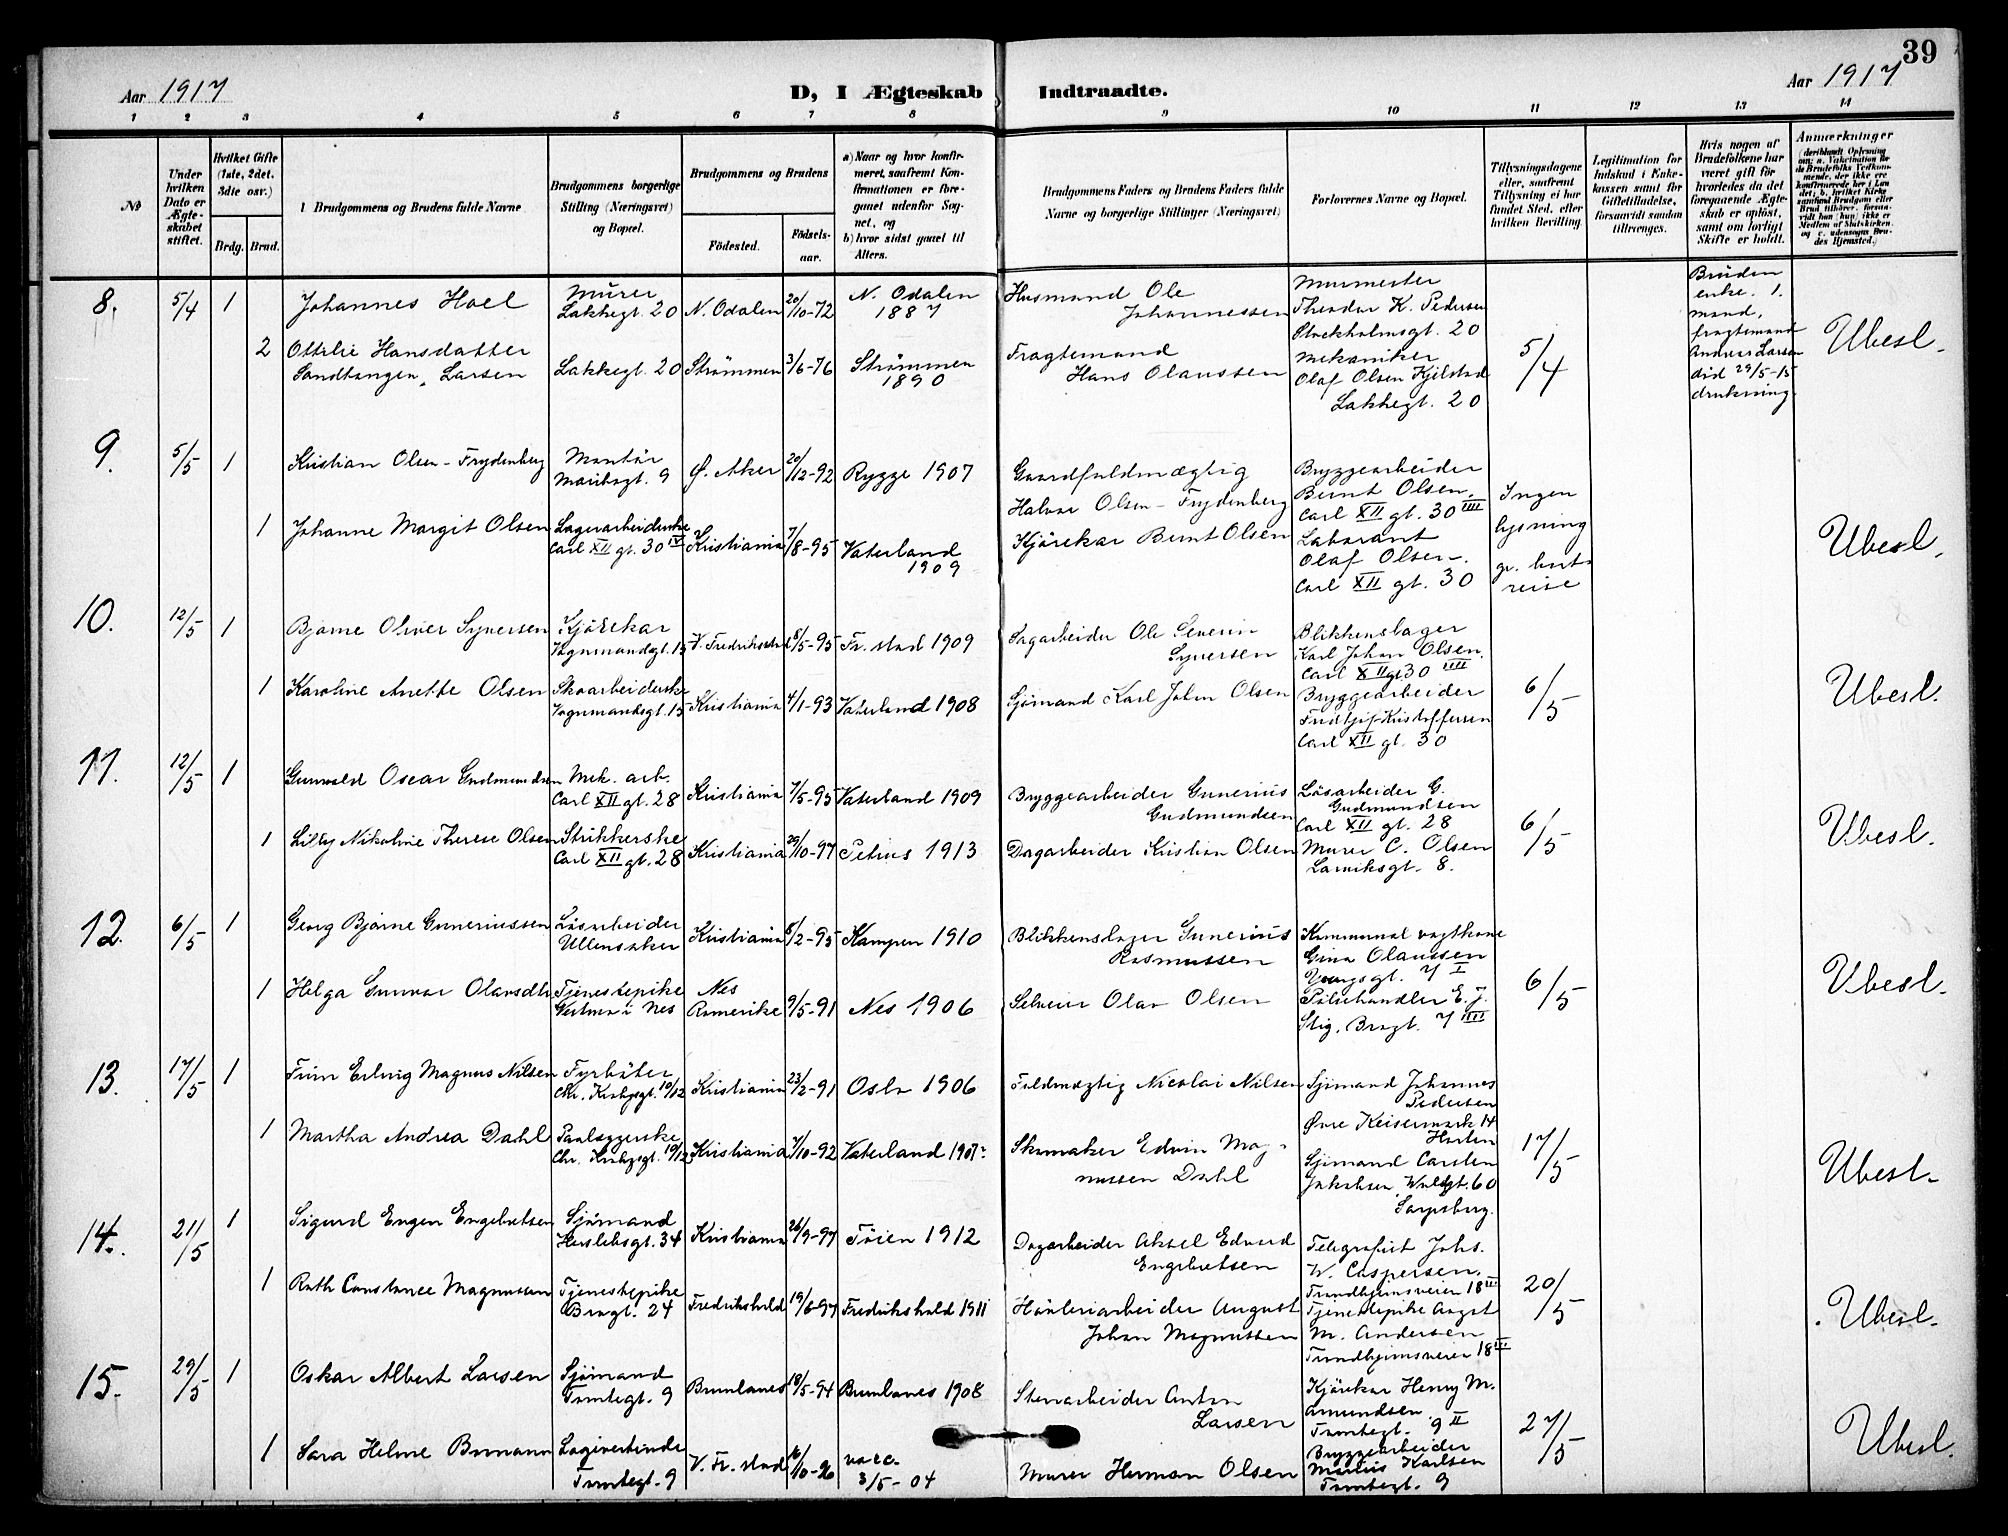 39
Aar 1917
D, I Ægteskab Indtraadte.
Aar 1917
1 2 3 4 5 6 7 8 9 10 11 12 13 14
No
Under hvilken Dato er Ægteskabet stiftet.
Hvilket Gifte (1ste, 2det, 3die osv.)
Brdg. Brud.
Brudgommens og Brudens fulde Navne
Brudgommens borgerlige Stilling (Næringsvei) og Bopæl.
Brudgommens og Brudens
Fødested. Fødselsaar.
a) Naar og hvor konfirmeret, saafremt Konfirmationen er foregaaet udenfor Sognet, og
b) hvor sidst gaaet til Alters.
Brudgommens Faders og Brudens Faders fulde Navne og borgerlige Stillinger (Næringsvei)
Forlovernes Navne og Bopæl.
Tillysningsdagene eller, saafremt Tillysning ei har fundet Sted, efter hvilken Bevilling
Legitimation for Indskud i Enkekassen samt for Giftetilladelse, forsaavidt saadan tiltrænges.
Hvis nogen af Brudefolkene har været gift før hvorledes da det foregaaende Ægteskab er opløst, samt om lovligt Skifte er holdt.
Anmærkninger
8. 5/4 1 Johannes Hoel
Murer
Lakkegt. 20
N. Odalen 20/10-72
N. Odalen
1887
Husmand Ole
Johannessen
Murmester
Theodor K. Pedersen
Stockholmsgt. 20
2 Ottilie Hansdatter
Sandtangen, Larsen
Lakkegt. 20
Strømmen 3/6-76
Strømmen
1890
Fragtemand
Hans Olaussen
Mekaniker
Olaf Olsen Kjilstad
Lakkegt. 20
5/4
Bruden
enke. 1.
mand,
fragtemand
Andreas Larsen
død 29/5-15
drukning.
Ubesl.
9. 5/5 1 Kristian Olsen-Frydenberg
Montör
Maribogt. 9
Ø. Aker 20/12-92
Rygge 1907
Gaardfuldmægtig
Halvor Olsen-Frydenberg
Bryggearbeider
Bernt Olsen.
Carl XII gt. 30 IIII
1 Johanne Margit Olsen
Lagerarbeiderske
Carl XII gt. 30 IV
Kristiania 7/8-95
Vaterland
1909
Kjörekar Bernt Olsen
Laborant
Olaf Olsen.
Carl XII gt. 30
Ingen
lysning
gr. bort-
reise
Ubesl.
10. 12/5 1 Bjarne Oliver Syversen
Kjörekar
Vognmandsgt. 15
V. Fredrikstad 8/5-95
Fr.stad 1909
Sagarbeider Ole Severin
Syversen
Blikkenslager
Karl Johan Olsen.
Carl XII gt. 30 IIII
1 Karoline Anette Olsen
Skoarbeiderske
Vognmandsgt. 15
Kristiania 4/1-93
Vaterland 1908
Sjömand Karl John Olsen
Bryggearbeider
Fridtjof Kristoffersen
Carl XII gt. 30
6/5
Ubesl.
11. 12/5 1 Gunvald Oscar Gudmundsen
Mek. arb.
Carl XII gt. 28
Kristiania 7/5-95
Vaterland 1909
Bryggearbeider Gunerius
Gudmundsen
Lösarbeider G.
Gudmundsen
Carl XII gt. 28
1 Lilly Nikoline Therese Olsen
Strikkerske
Carl XII gt. 28
Kristiania 29/10-97
Petrus 1913
Dagarbeider Kristian Olsen
Murer C. Olsen
Larviksgt. 8.
6/5
Ubesl.
12. 6/5 1 Georg Bjarne Gunerius­sen
Lösarbeider
Ullensaker
Kristiania 8/2-95
Kampen 1910
Blikkenslager Gunerius
Rasmussen
Kommunal vagtkone
Gina Olaussen
Youngsgt. 7 I
1 Helga Gunvor Olavsdtr
Tjenestepike
i Nes
Nes
Romerike 9/5-91
Nes 1906
Selveier Olav Olsen
Pølsehandler E. J.
Stig, Brogt. 7 IIII
6/5
Ubesl.
13. 17/5 1 Finn Erling Magnus Nilsen
Fyrböter
Chr. Krohgsgt. 10/12
Kristiania 23/2-91
Oslo 1906
Fuldmægtig Nicolai Nilsen
Sjömand Johannes
Pedersen
Øvre Keisermark 14
Horten
1 Martha Andrea Dahl
Paalæggerske
Chr. Krohgsgt. 10/12
Kristiania 7/10-92
Vaterland 1907
Skomaker Edvin Mag-
nussen Dahl
Sjömand Carsten
Jakobsen 60
Sarpsborg.
17/5
Ubesl.
14. 21/5 1 Sigurd Eugen Engebretsen
Sjömand
Herslebsgt. 34
Kristiania 26/9-97
Töien 1912
Dagarbeider Aksel Edvard
Engebretsen
Telegrafist Johs.
W. Caspersen.
Trondhjemsveien 18 III
1 Ruth Constance Magnussen
Tjenestepike
Brogt. 24
Fredrikshald 19/6-97
Fredrikshald 1911
Høvleriarbeider August
Johan Magnussen
Tjenestepike Augst
M. Andersen
Trondhjemsveien 18 III
20/5
Ubesl.
15. 29/5 1 Oskar Albert Larsen
Sjömand
Tomtegt. 9
Brunlanes 18/5-94
Brunlanes 1908
Stenarbeider Anton
Larsen
Kjörekar Henry M.
Amundsen
Tomtegt. 9 II
1 Sara Helene Bumann
Logivertinde
Tomtegt. 9
V. Fr.stad 16/10-96
vacc.
3/5-04
Murer Herman Olsen
Bryggearbeider
Marius Karlsen
Tomtegt. 9
27/5
Ubesl.